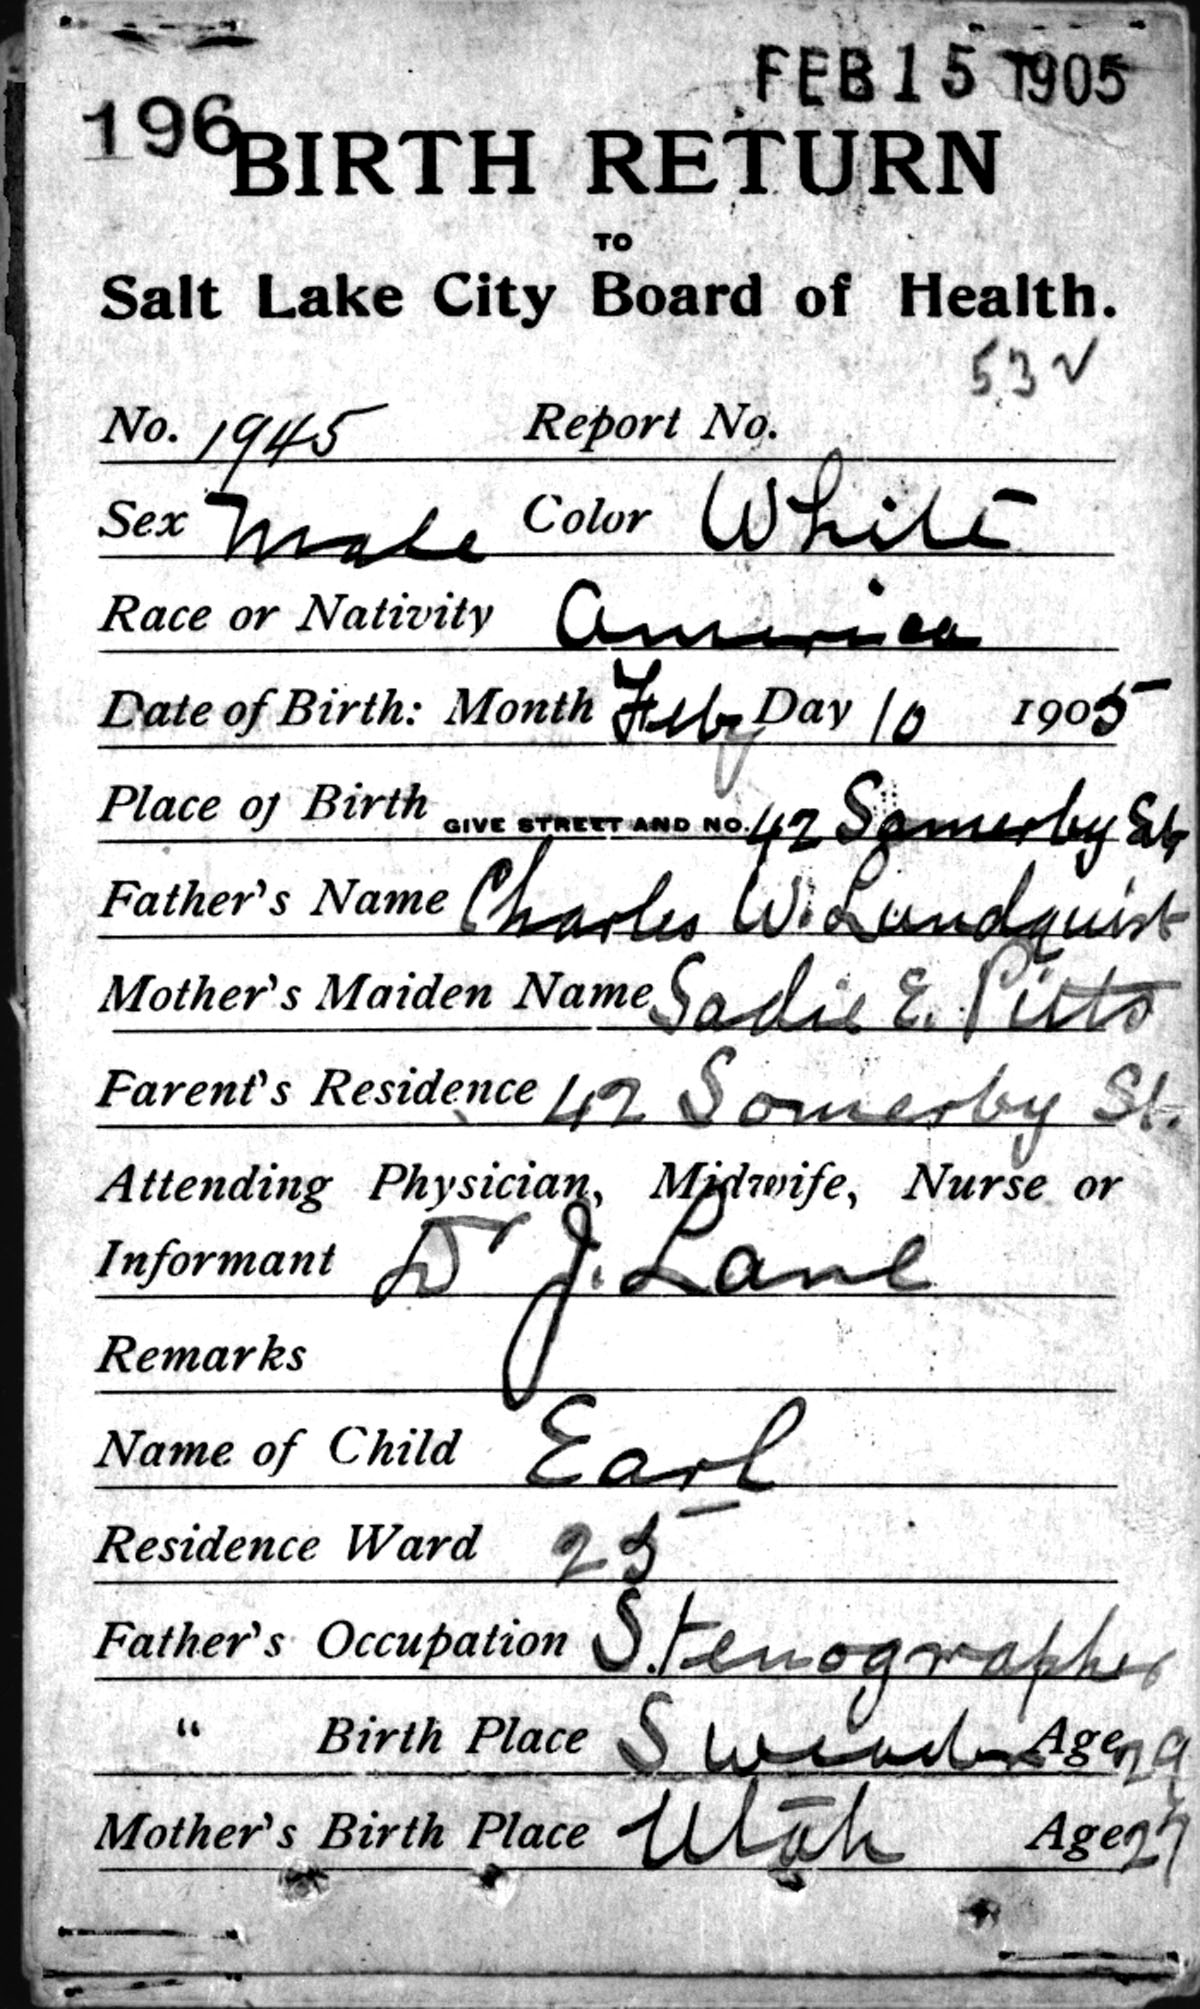 FEB 15 1905
196
BIRTH RETURN
TO
Salt Lake City Board of Health.
53 ✓
No. 1945 Report No.
Sex Male Color White
Race or Nativity America
Date of Birth: Month Feby Day 10 1905
Place of Birth GIVE STREET AND NO. 42 Somerby St,
Father's Name Charles W. Lundquist
Mother's Maiden Name Sadie E. Pitts
Parent's Residence 42 Somerby St.
Attending Physician, Midwife, Nurse or
Informant Dr J. Lane
Remarks
Name of Child Earl
Residence Ward 25
Father's Occupation Stenographer
" Birth Place Sweaden Age 29
Mother's Birth Place Utah Age 27